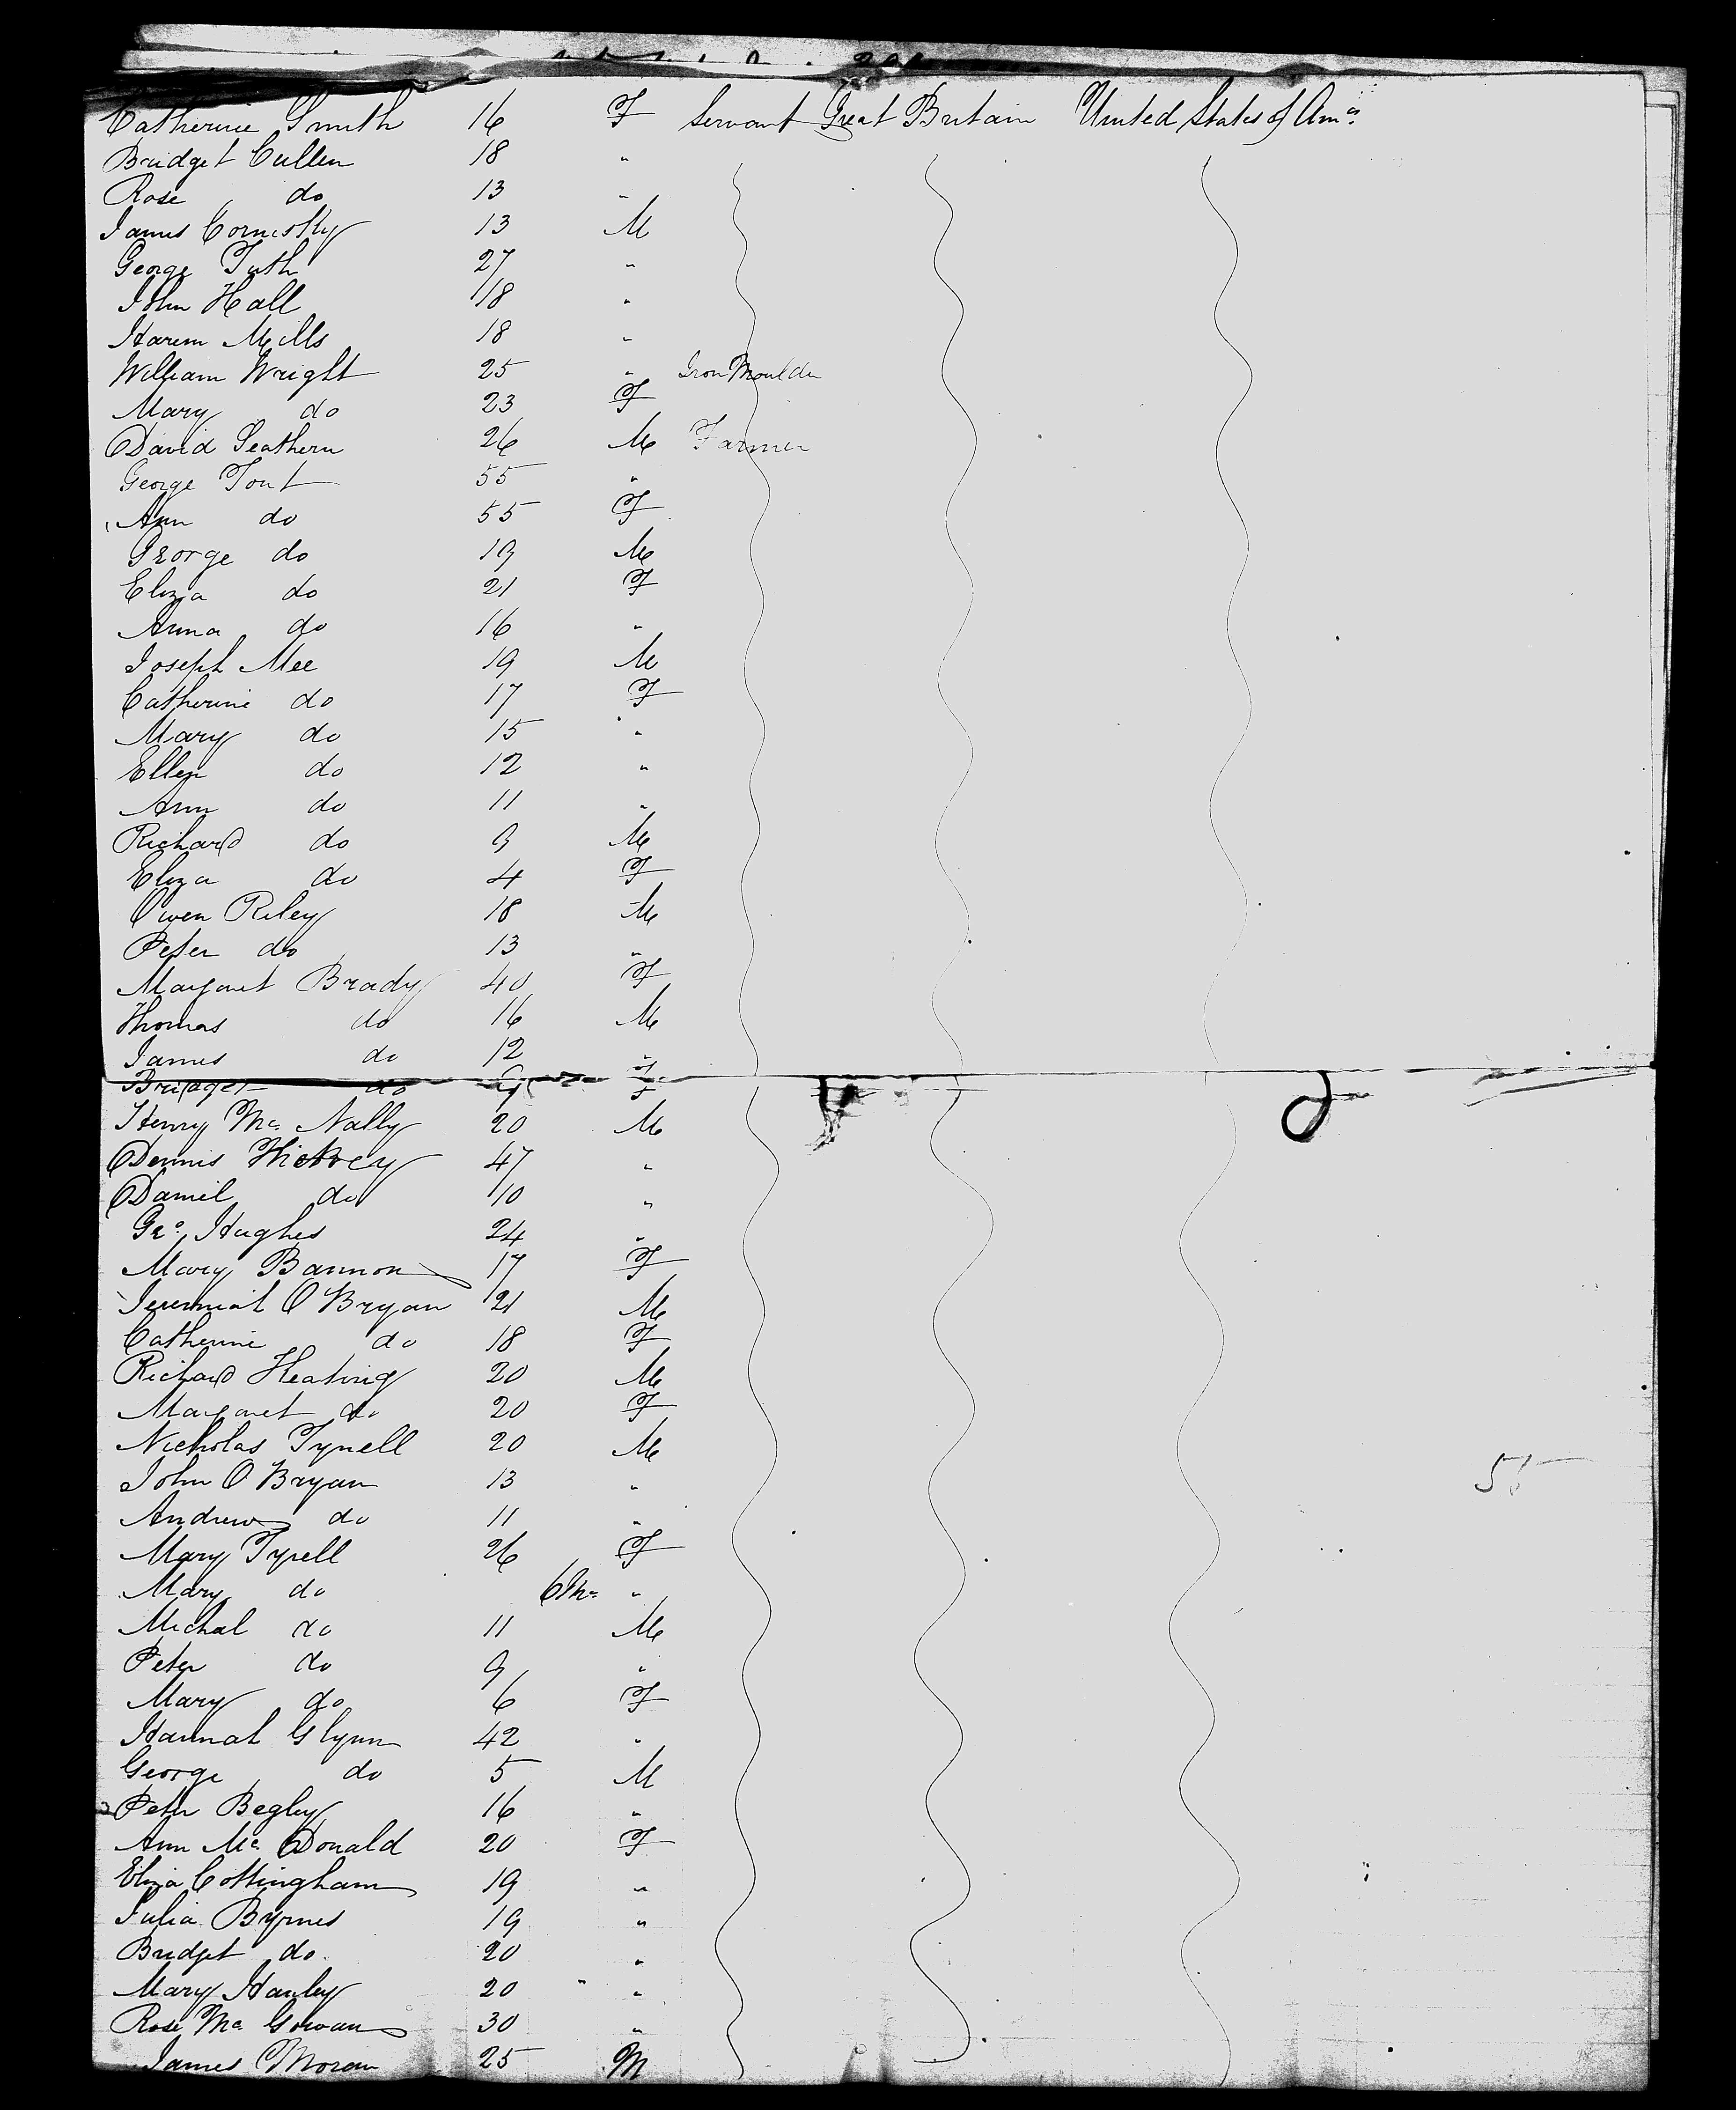 Catherine Smith 16 F Servant Great Britain United States of Ama
Bridget Cullen 18 "
Rose do 13 "
James 13 M
George Tuth 27 "
John Hall 18 "
Harem Mills 18 "
William Wright 25 " Iron Moulder
Mary do 23 F
David Seathern 26 M Farmer
George Tout 55 "
Ann do 55 F
George do 19 M
Eliza do 21 F
Anna do 16 "
Joseph Mee 19 M
Catherine do 17 F
Mary do 15 "
Ellen do 12 "
Ann do 11 "
Richard do 9 M
Eliza do 4 F
Owen Riley 18 M
Peter do 13 "
Margaret Brady 40 F
Thomas do 16 M
James do 12 "
Bridget do 9 F
Henry Mc Nally 20 M
Dennis Hickey 47 "
Daniel do 10 "
Geo Hughes 24 "
Mary Bannon 17 F
Jeremiah O Bryan 21 M
Catherine do 18 F
Richard Heating 20 M
Margaret do 20 F
Nicholas Tyrell 20 M
John O Bryan 13 "
Andrew do 11 "
Mary Tyrell 26 F
Mary do 6 Mo "
Michal do 11 M
Peter do 9 "
Mary do 6 F
Hannah Glynn 42 "
George do 5 M
Peter Begley 16 "
Ann Mc Donald 20 F
Eliza Cottingham 19 "
Julia Byrnes 19 "
Bridget do 20 "
Mary Hanley 20 "
Rose Mc Gowan 30 "
James Moran 25 M